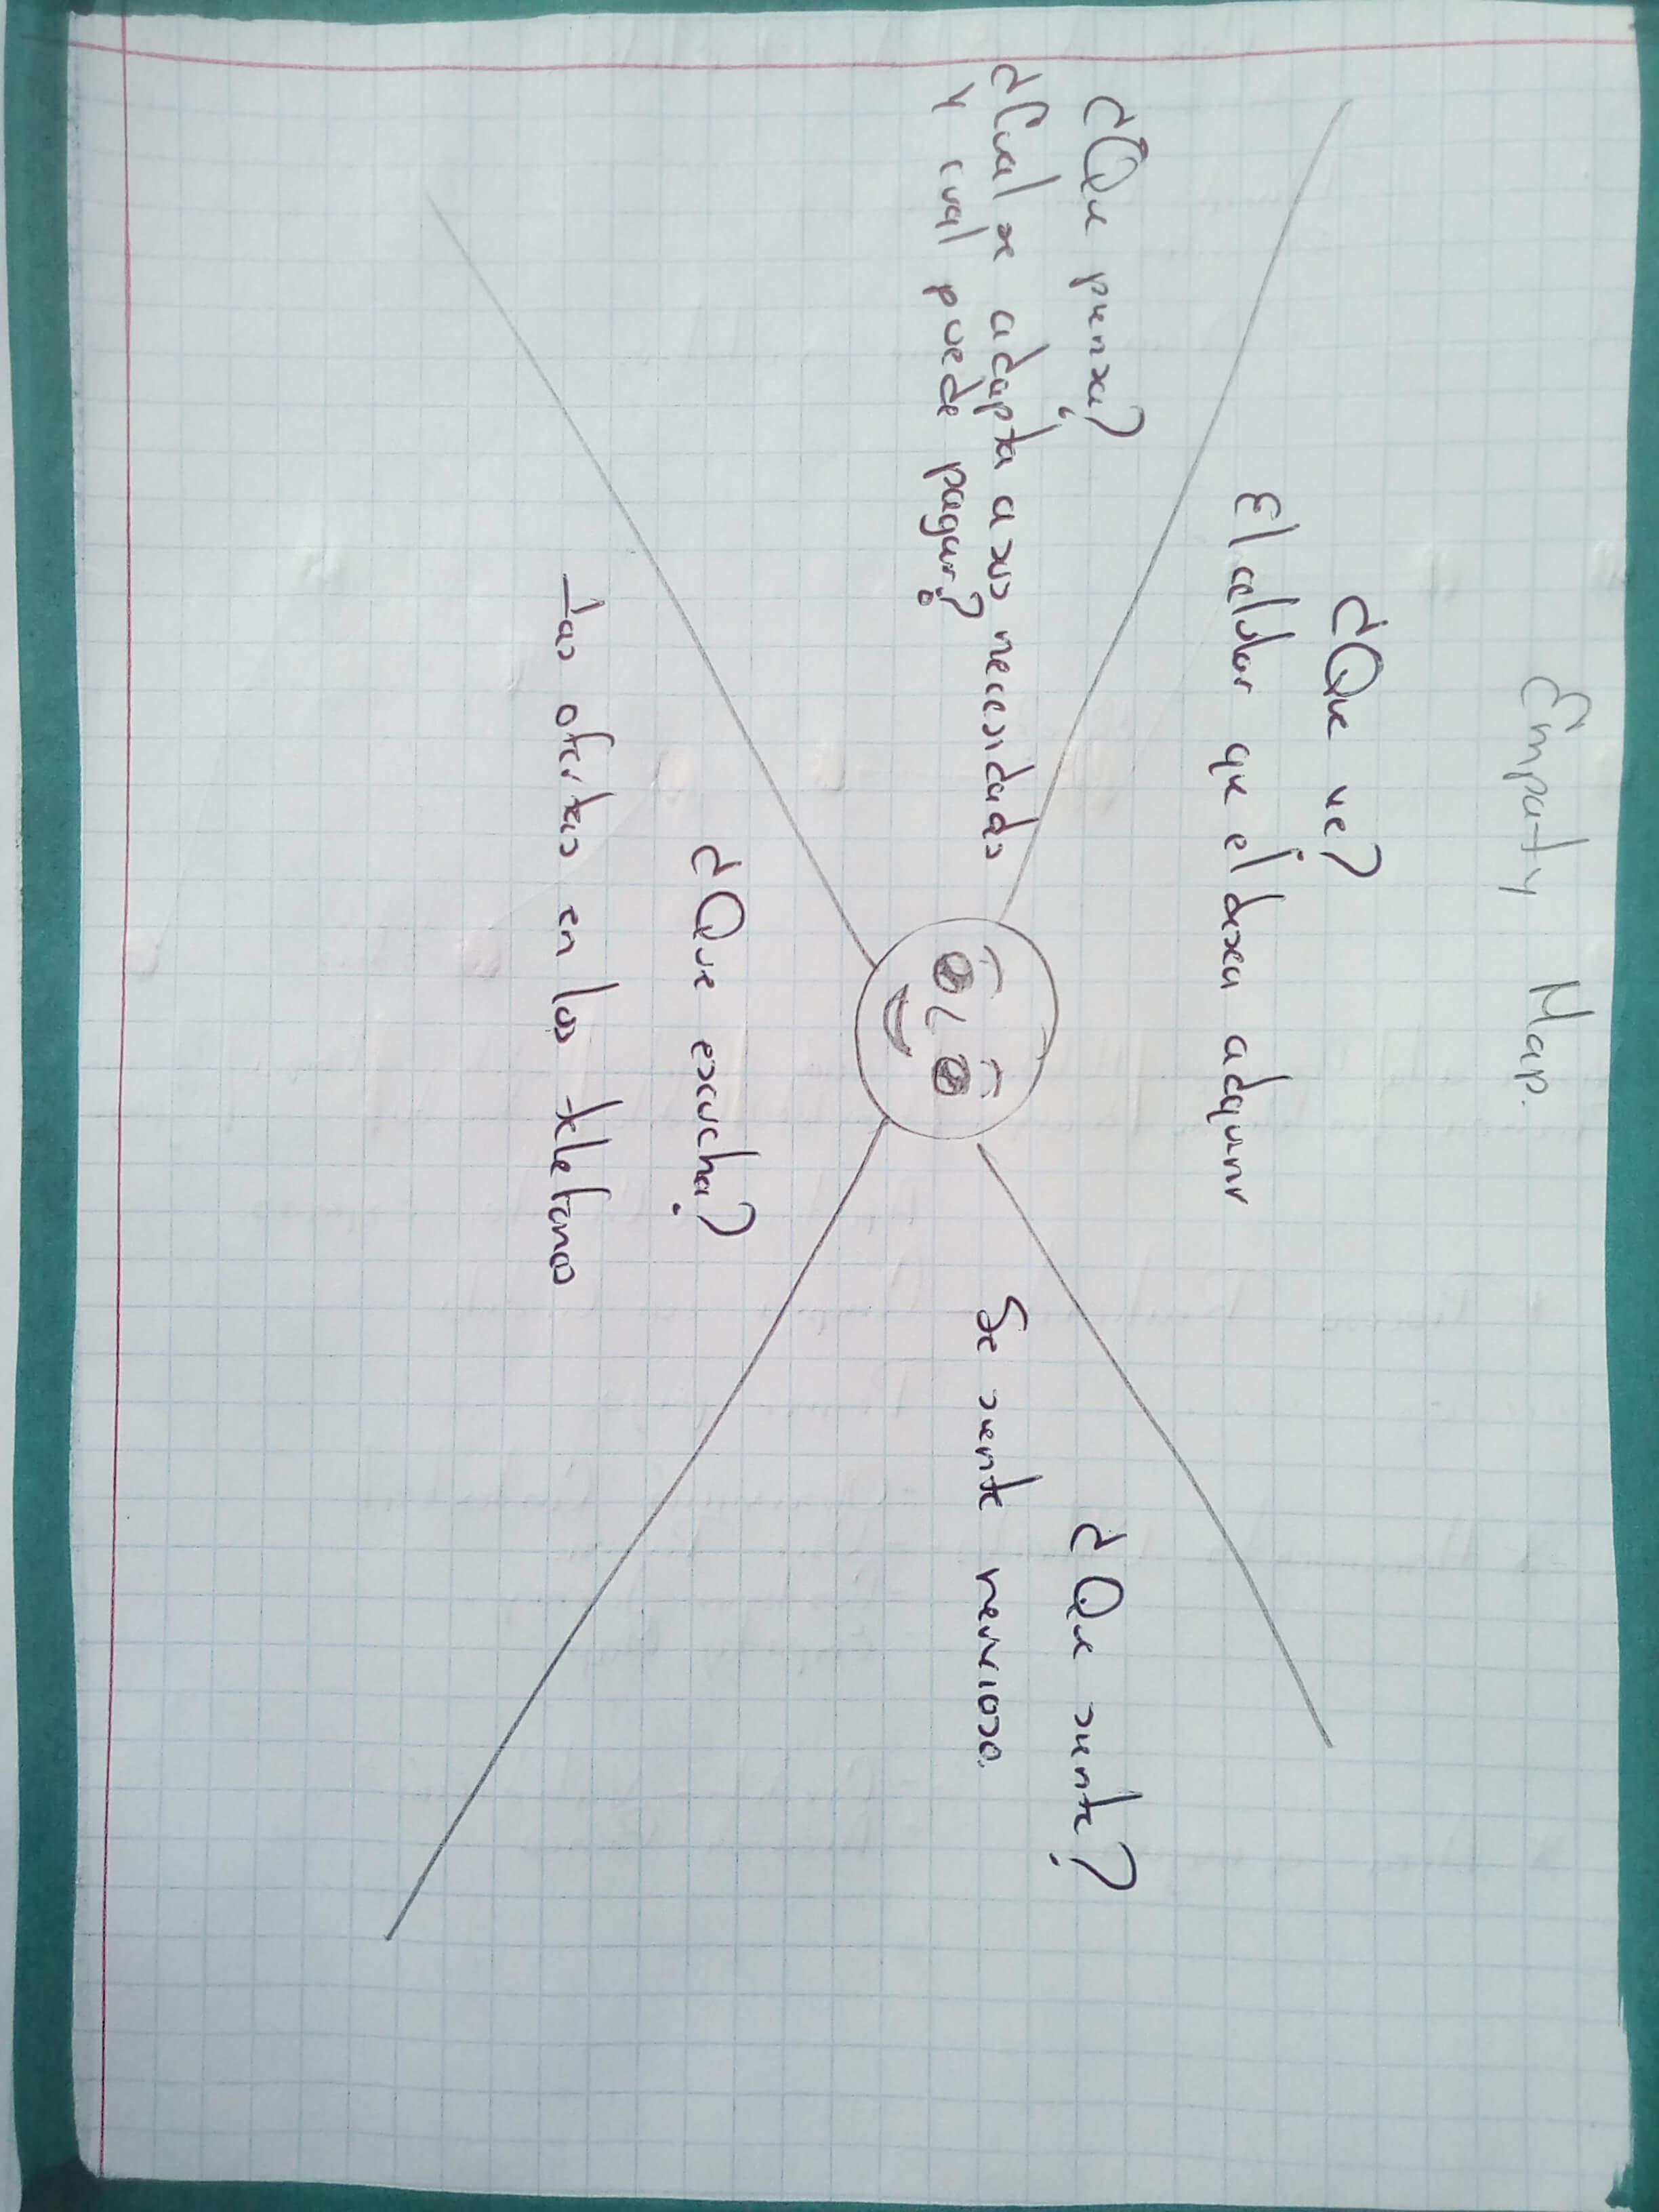 Empaty Map.
¿Que ve?
El celular que él desea adquirir
¿Que piensa?
¿Cual se adapta a sus necesidades
y cual puede pagar?
¿Que siente?
Se siente nervioso.
¿Que escucha?
Las ofertas en los telefonos